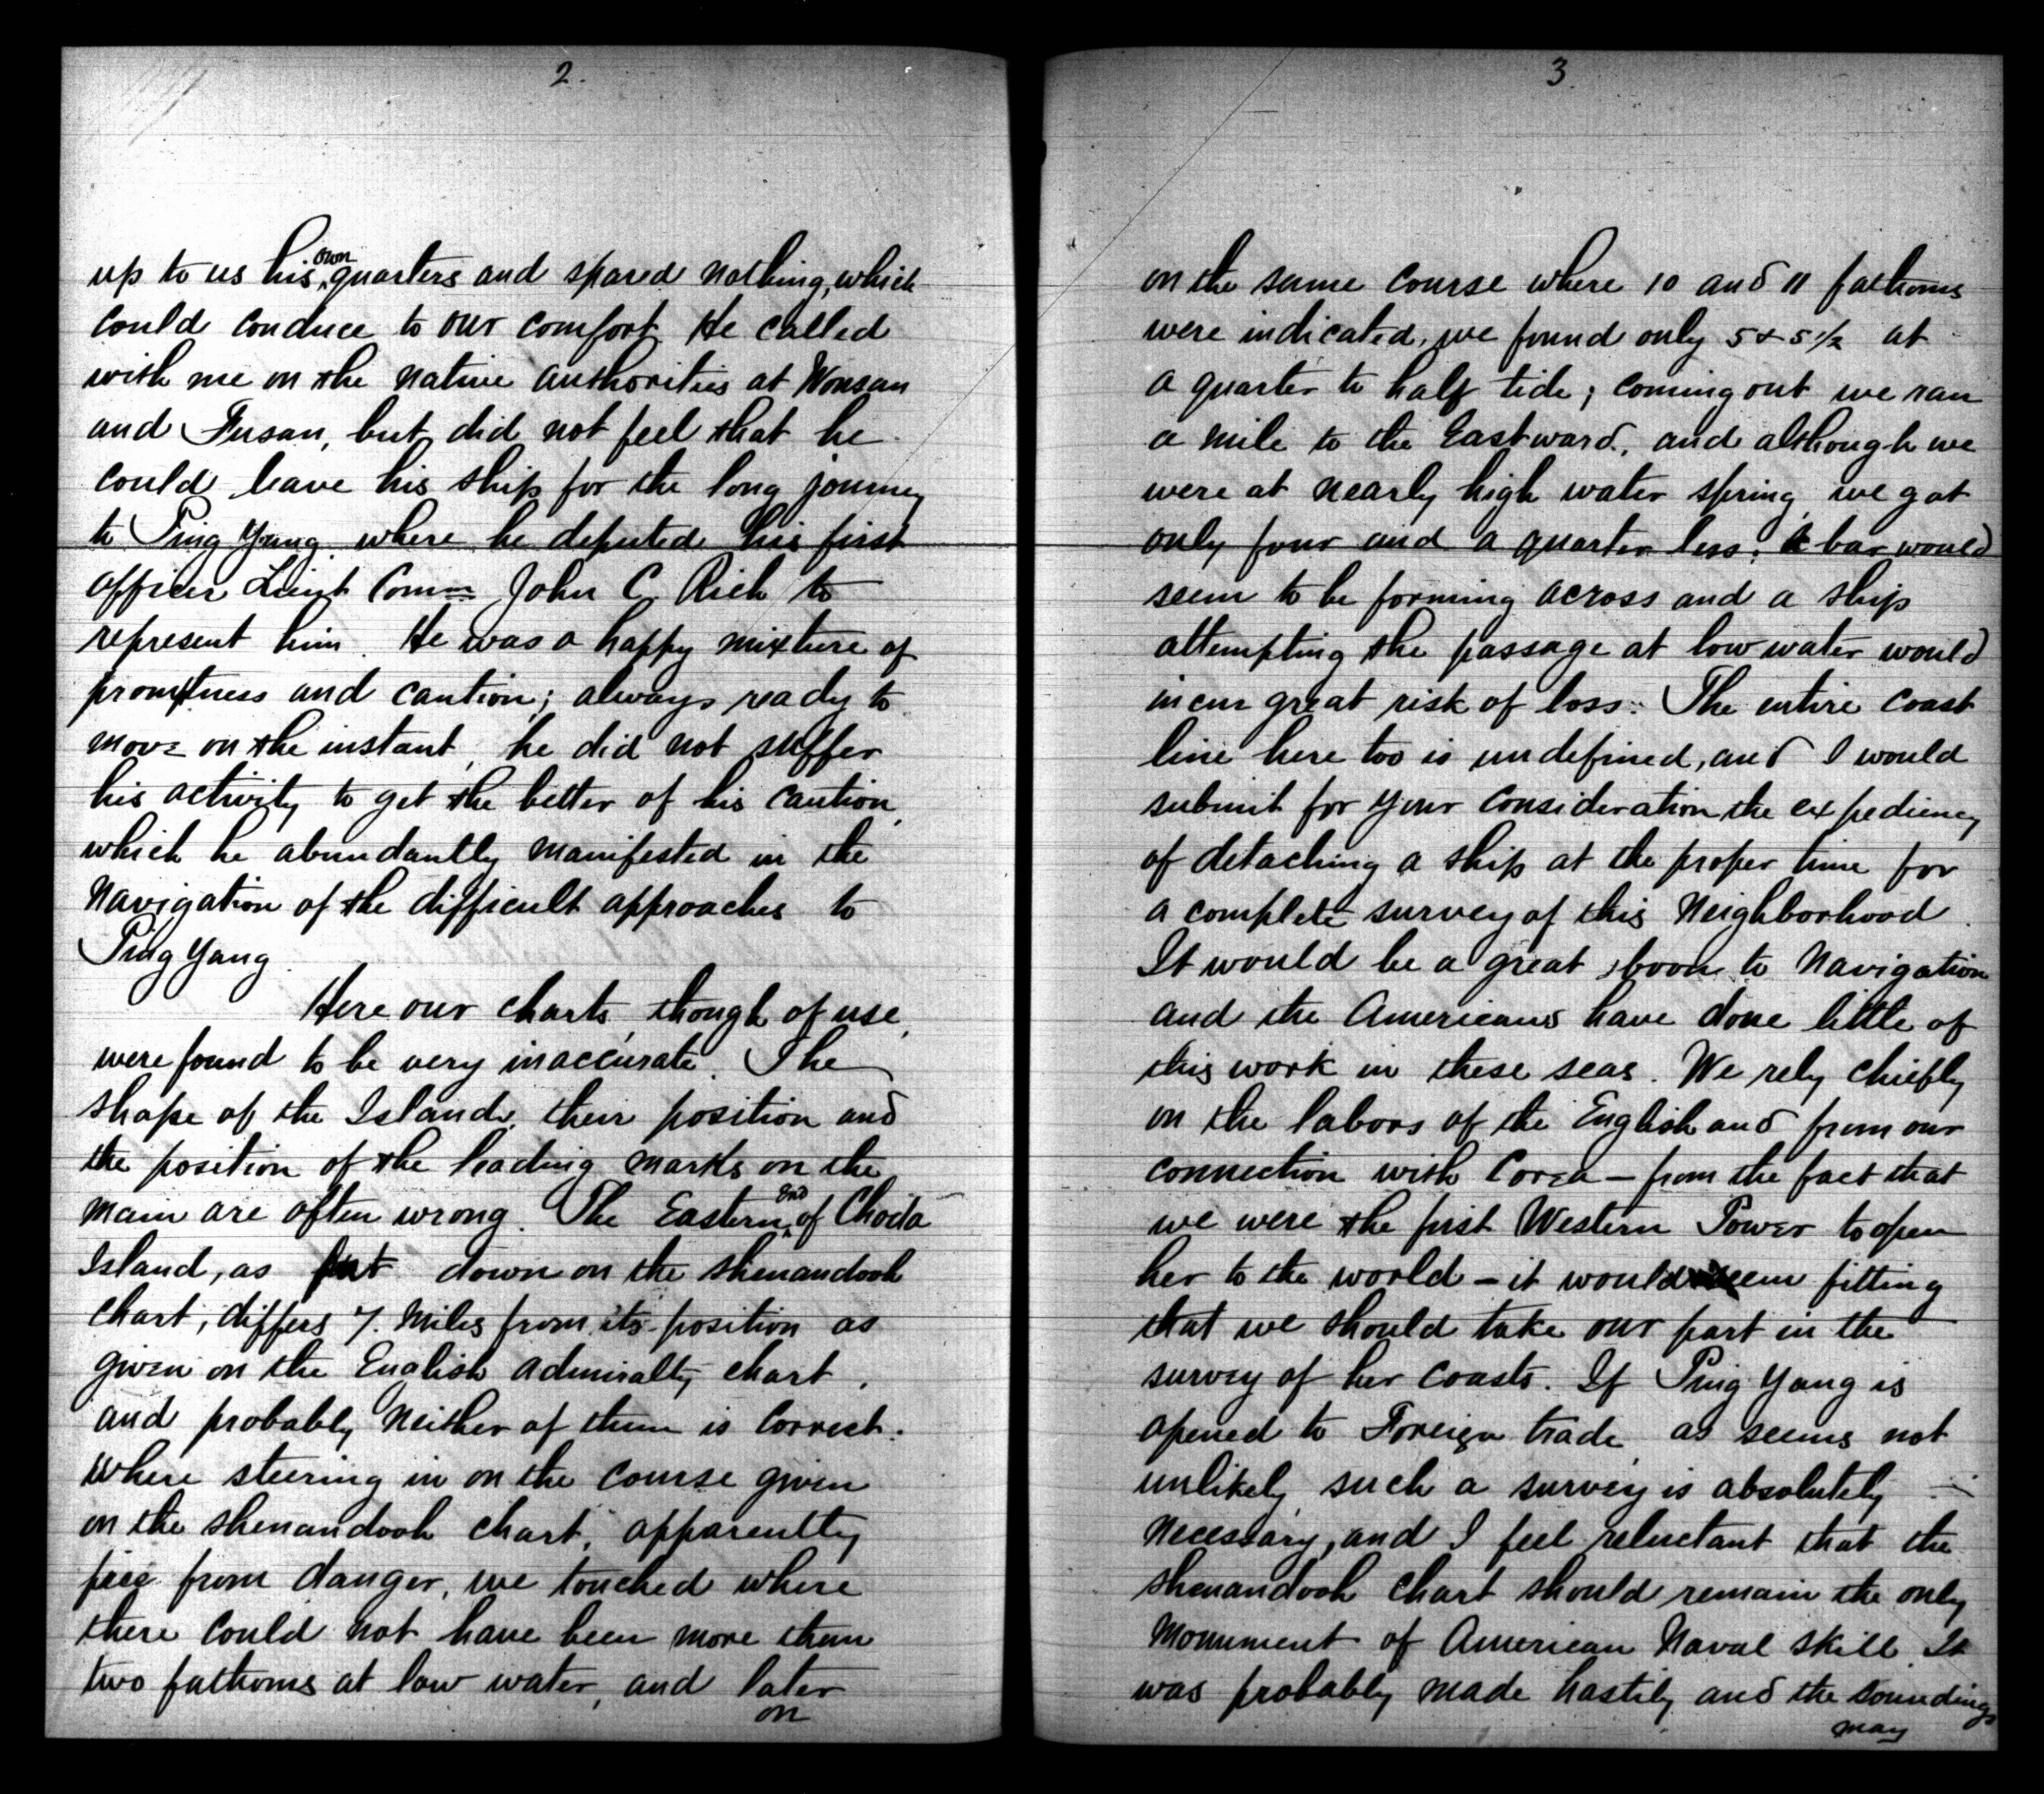 2.
up to us his own quarters and spared nothing, which
could conduce to our comfort. He called
with me on the native authorities at Wonsan
and Fusan, but did not feel that he
could leave his ship for the long journey
to Ping Yang where he deputed his first
officer Lieut Comm John C. Rich to
represent him. He was a happy mixture of
promptness and caution; always ready to
move on the instant, he did not suffer
his activity to get the better of his caution,
which he abundantly manifested in the
navigation of the difficult approaches to
Ping Yang.
Here our charts, though of use,
were found to be very inaccurate. The
shape of the Island, their position and
the position of the leading marks on the
main are often wrong. The Eastern end of Choda
Island, as put down on the Shenandoah
chart, differs 7. miles from its position as
given on the English Admiralty chart,
and probably neither of them is correct.
Where steering in on the course given
on the Shenandoah chart, apparently
free from danger, we touched where
there could not have been more than
two fathoms at low water, and later
on
3
on the same course where 10 and 11 fathoms
were indicated, we found only 5 & 5 1/2 at
a quarter to half tide; coming out we ran
a mile to the Eastward, and although we
were at nearly high water spring, we got
only four and a quarter less; A bar would
seem to be forming across and a ship
attempting the passage at low water would
incur great risk of loss. The entire coast
line here too is undefined, and I would
submit for your consideration the expediency
of detaching a ship at the proper time for
a complete survey of this neighborhood.
It would be a great boon to navigation
and the Americans have done little of
this work in these seas. We rely chiefly
on the labors of the English and from our
connection with Corea – from the fact that
we were the first Western Power to open
her to the world – it would seem fitting
that we should take our part in the
survey of her coasts. If Ping Yang is
opened to Foreign trade as seems not
unlikely such a survey is absolutely
necessary, and I feel reluctant that the
Shenandoah chart should remain the only
monument of American Naval skill. It
was probably made hastily and the soundings
may